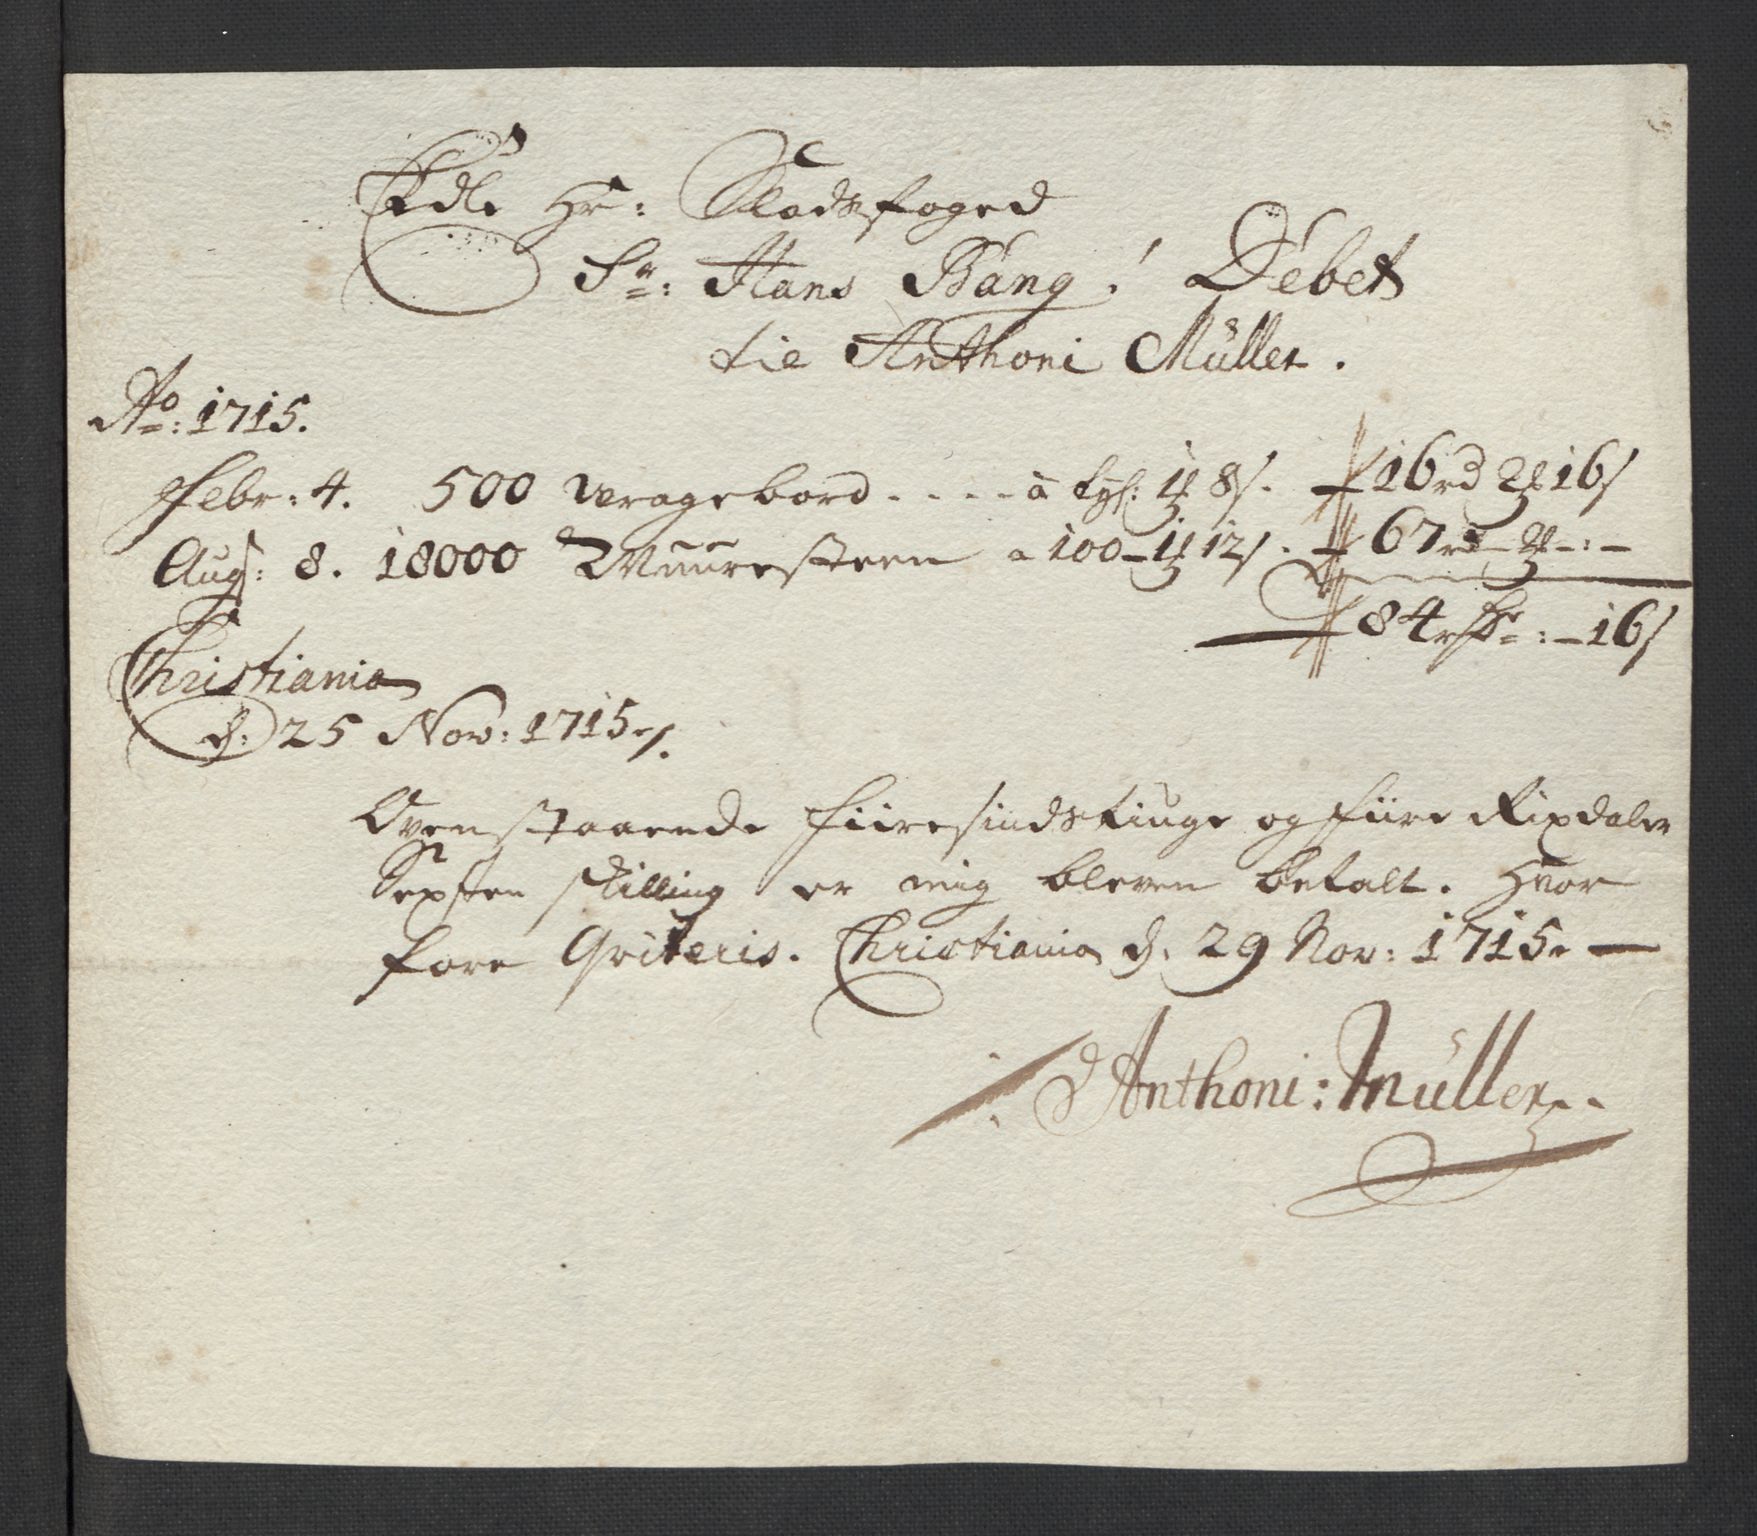 Edle Hr: Slodsfoged
Sr: Hans Bang! Debet
til Anthoni Müller.
Ao: 1715.
Febr: 4. 500 vragebord . . . . à tyf: 1 8/. 16 rd 2 16/
Aug: 8. 18000 Muuresteen a 100 - 1 12/. 67 rd - - : -
84 rd : - 16/
Christiania
d: 25 Nov: 1715 /.
Ovenstaaende fiiresindstiuge og fiire Rixdaler
Sexsten skilling er mig bleven betalt. Hvor
fore Qviteris. Christiania d. 29 Nov: 1715. —
Anthoni: Müller